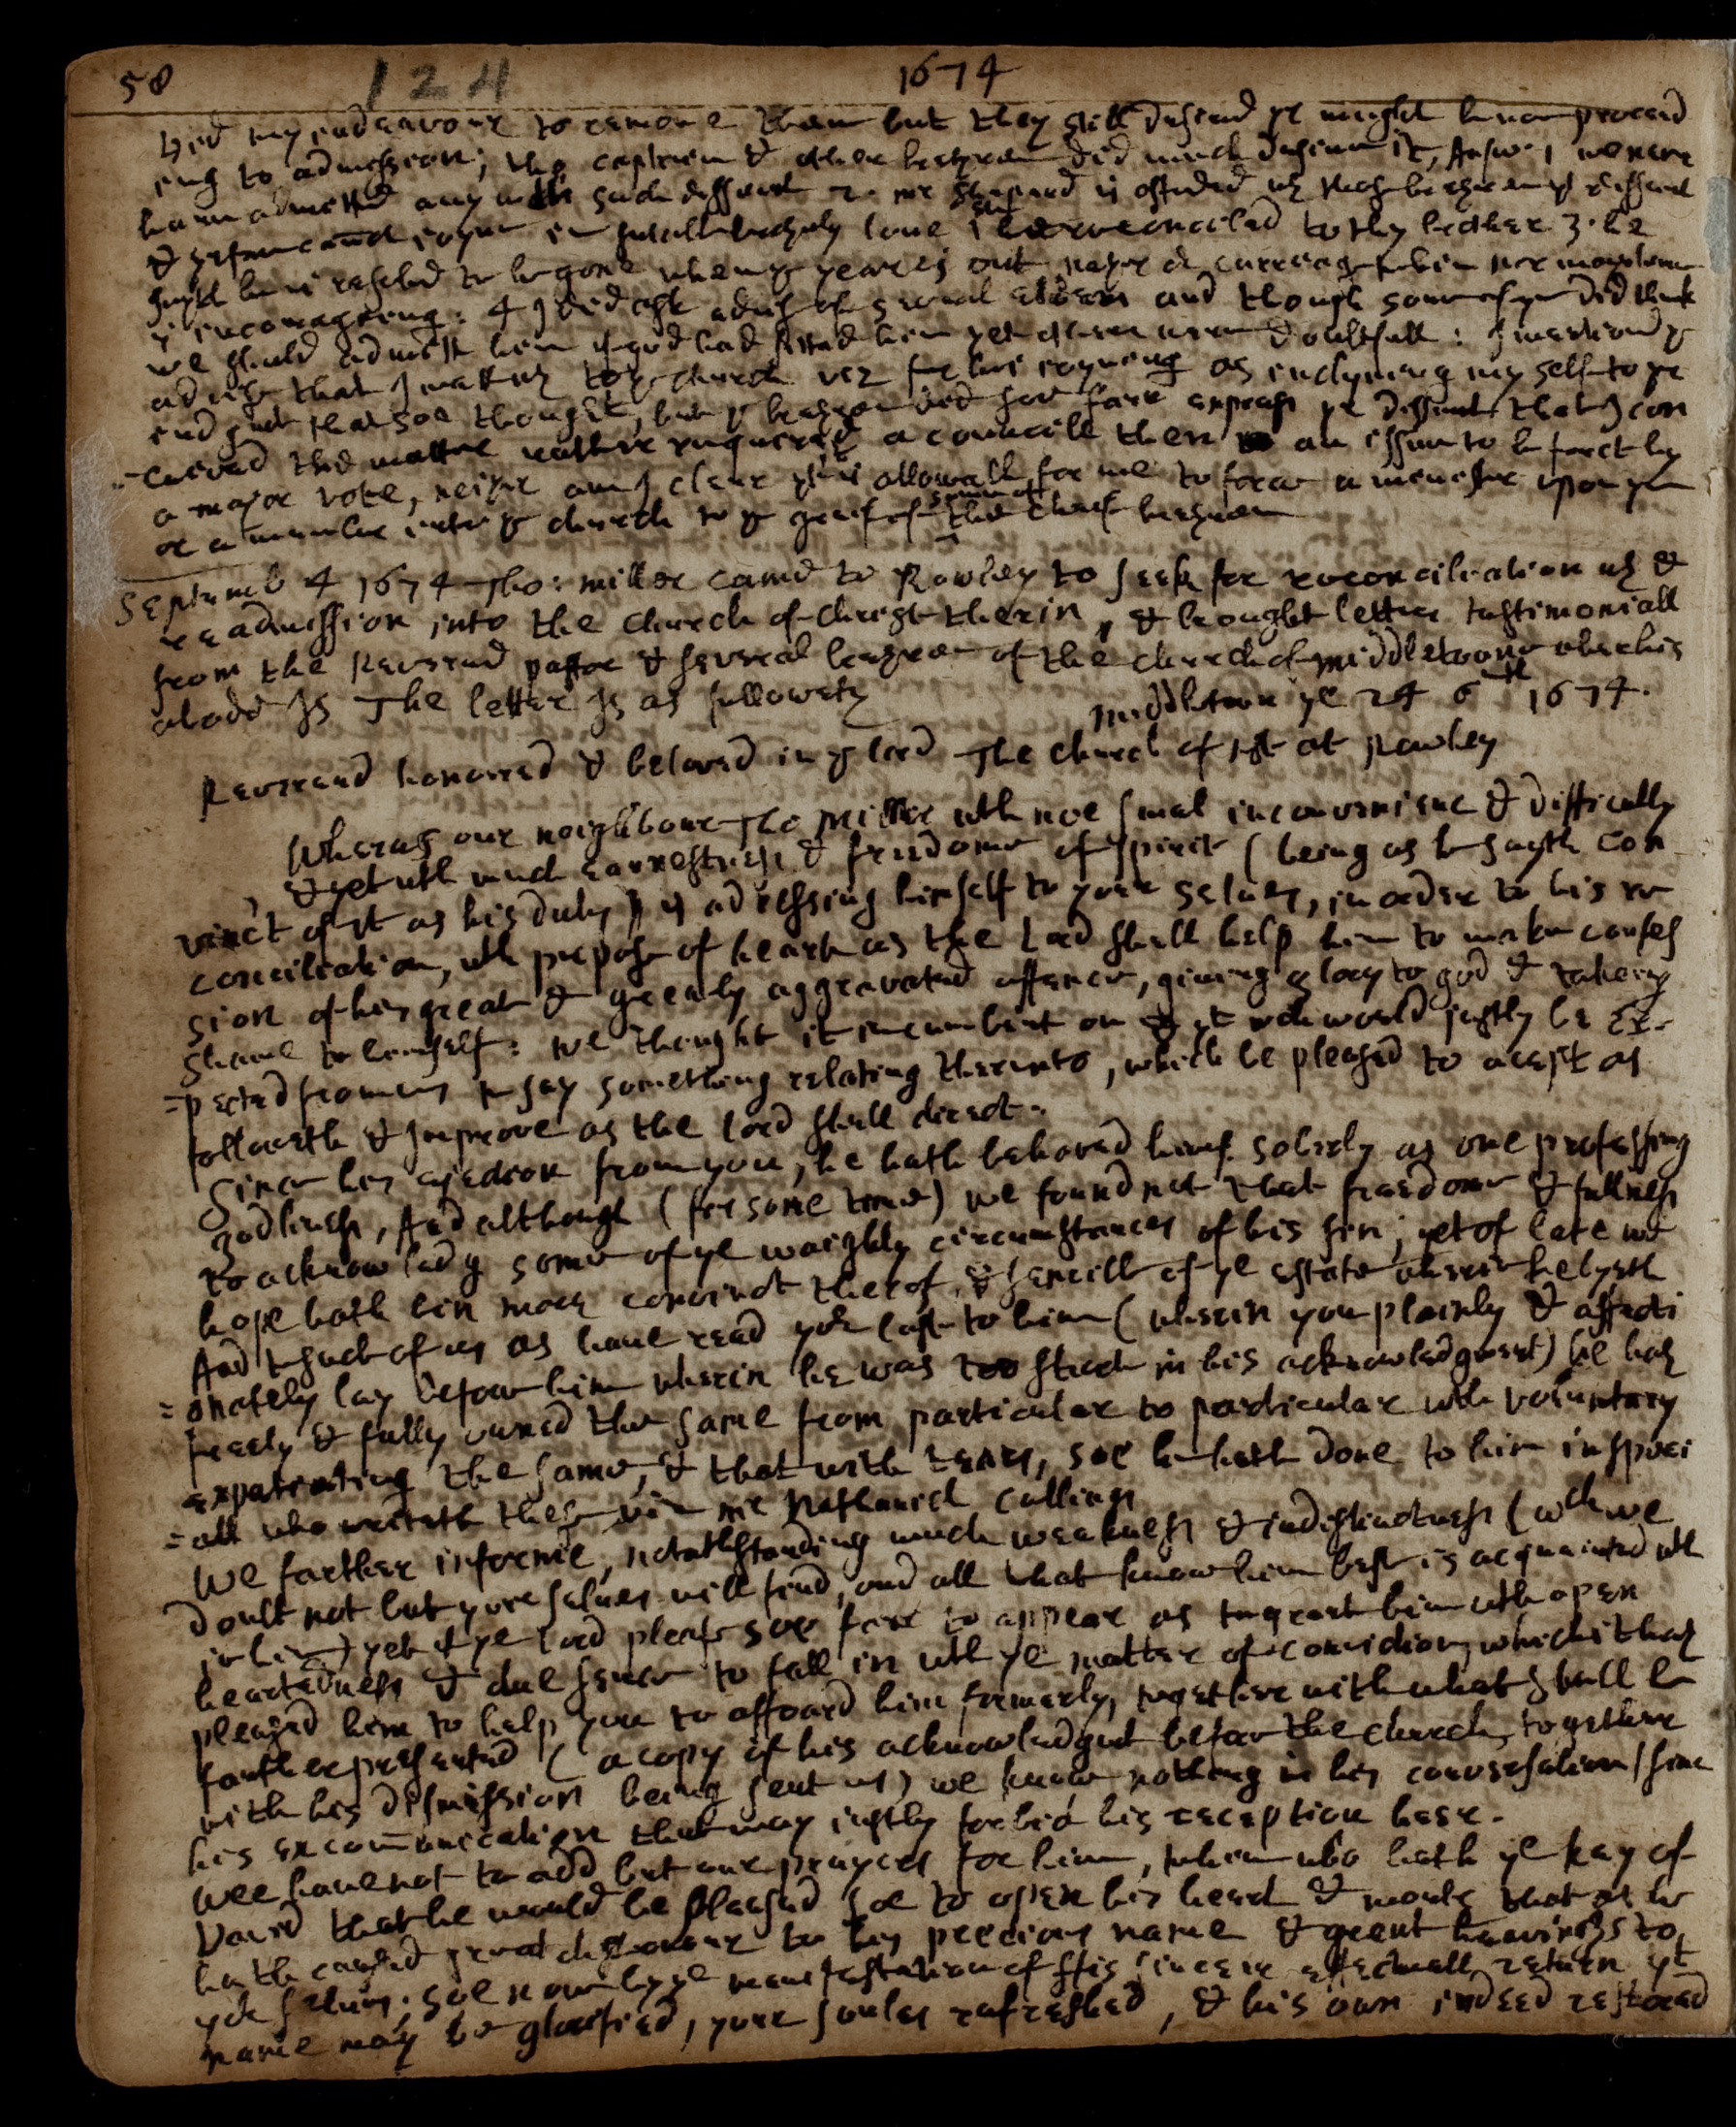 58 124 1674
did my endeavour to remove them but they still desired ye might be noe proceed
ing to admission; the captein & other brethren did much desire it, Answ. 1 we never
have admitted any with such dissent 2. mr Shepard is offended wth those brethren yt dissent
& how can and joyne in full brotherly love 1 be reconciled to thy brother 3. he
sayth he is resolved to be gone when ye yeare is out, neyr is carriage
is incouraging: 4 I did ask advise of severall elders and though some of ym did think
we should admitt him if god had fitted him yet others were doubtfull: I
advise that I matters to ye church as inclyning my self to ye
end that soe thought, but ye brethren did soe farr express yr dissent that I con
-ceived this matter rather required a councill then an issue to be forct by
a major vote, neiyr am I clear yt it is allowable for me to force a minister upon ym
or a member into ye church to ye greif of some of the cheif brethren
September 4 1674 Tho: miller came to Rowley to seek for reconciliation wth &
readmission into the church of christ therin, & brought letter testimoniall
from the Reverend pastor & several brethren of the church of middletowne where his
abode is The letter is as followeth
middletown ye 24 6th 1674.
Reverend honored & beloved in ye lord The church of xst at Rowley
Wheras our neighbour Tho miller wth noe smal inconvenience & difficulty
& yet wth much earnestness & freedome of spirit (being as he sayth con
vinct of it as his duty) is adressing himself to your selves, in order to his re
conciliation, wth purpose of heart as the Lord shall help him to make confes
sion of his great & greatly aggravated offence, giving glory to god & taking
shame to himself: we thought it incumbent on us & it wch would justly be ex-
=pected from us to say something relating thereunto, which be pleased to accept as
followeth & improve as the lord shall direct.
Since his ejection from you, he hath behaved himself soberly as one professing
godliness, And although (for some time) we found not that freedome & fullness
to acknowledg some of ye weighty circumstances of his sin; yet of late we
hope hath bin more convinct therof, & sensible of ye estate wherin he lyeth
And to such of us as have read your last to him (wherin you plainly & affecti
=onately lay before him wherin he was too short in his acknowledgment) he hath
freely & fully owned the same from particular to particular with voluntary
expatiating the same, & that with tears, soe he hath done to him in speci
=all who writeth these viz mr Nathaniel Collins
We farther informe, notwthstanding much weakness & indistinctness (wch we
doubt not but your selves will find, and all that know him best is acquainted wth
in him) yet if ye lord please soe farr to appear as to grant him wth open
heartedness & due sence to fall in wth ye matter of conviction, which it hath
pleased him to help you to afford him formerly, together with what shall be
farther presented (a copy of his acknowledgmt before the church, together
with his dismission being sent us) we know nothing in his conversation since
his excommunication that may justly forbid his reception here.
Wee have not to add but our prayers for him, to him who hath ye key of
David that he would be pleased soe to open his heart & mouth that as he
hath caused great dishonour to his precious name & great heaviness to
your selves, soe now by ye manifestation of his sincere effectuall return yt
name may be glorified, your soules refreshed, & his own indeed restored